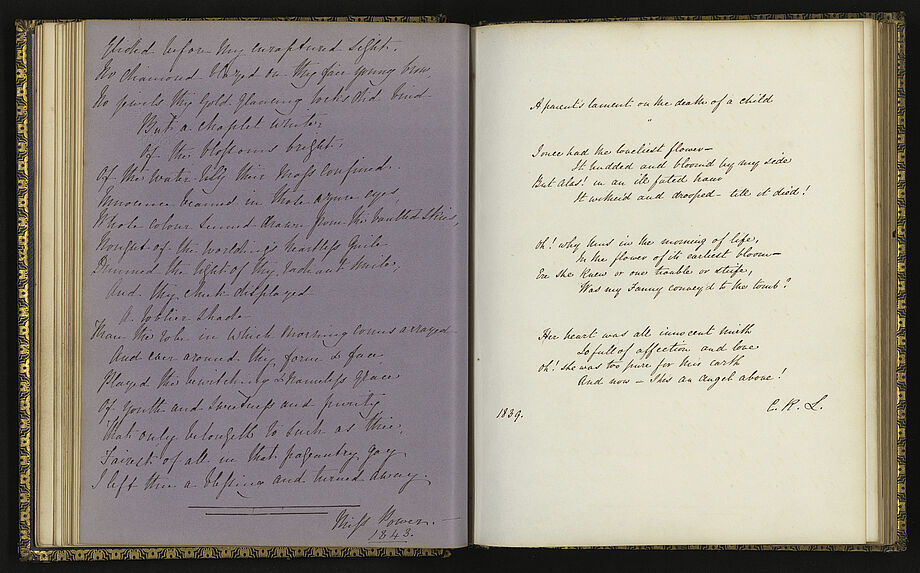 Glided before my enraptured sight.
No diamond blazed on thy fair young brow
No jewels thy gold glancing locks did bind
But a chaplet white,
Of the blossoms bright,
Of the water lily their mass confined.
Innocence beamed in those azure eyes,
Whose colour seemed drawn from the vaulted skies,
Nought of the world – its heartless guile
Dimmed the light of thy radiant smile,
And thy cheek displayed
A lovelier shade
Than the robe in which morning comes arrayed
And ever around thy form & face
Played the bewitching & nameless grace
Of youth and sweetness and purity
That only belongeth to such as thee.
Fairest of all in that pageantry gay
I left thee a blessing and turned away.
Miss Power.
1843.
A parent's lament on the death of a child
I once had the loveliest flower –
It budded and bloom'd by my side
But alas! in an ill fated hour
It wither'd and drooped – till it died!
Oh! why thus in the morning of life,
In the flower of its earliest bloom –
Ere she knew or one trouble or strife,
Was my Fanny convey'd to the tomb?
Her heart was all innocent mirth
So full of affection and love
Oh! she was too pure for this earth
And now – She's an angel above!
1839.
C. R. L.